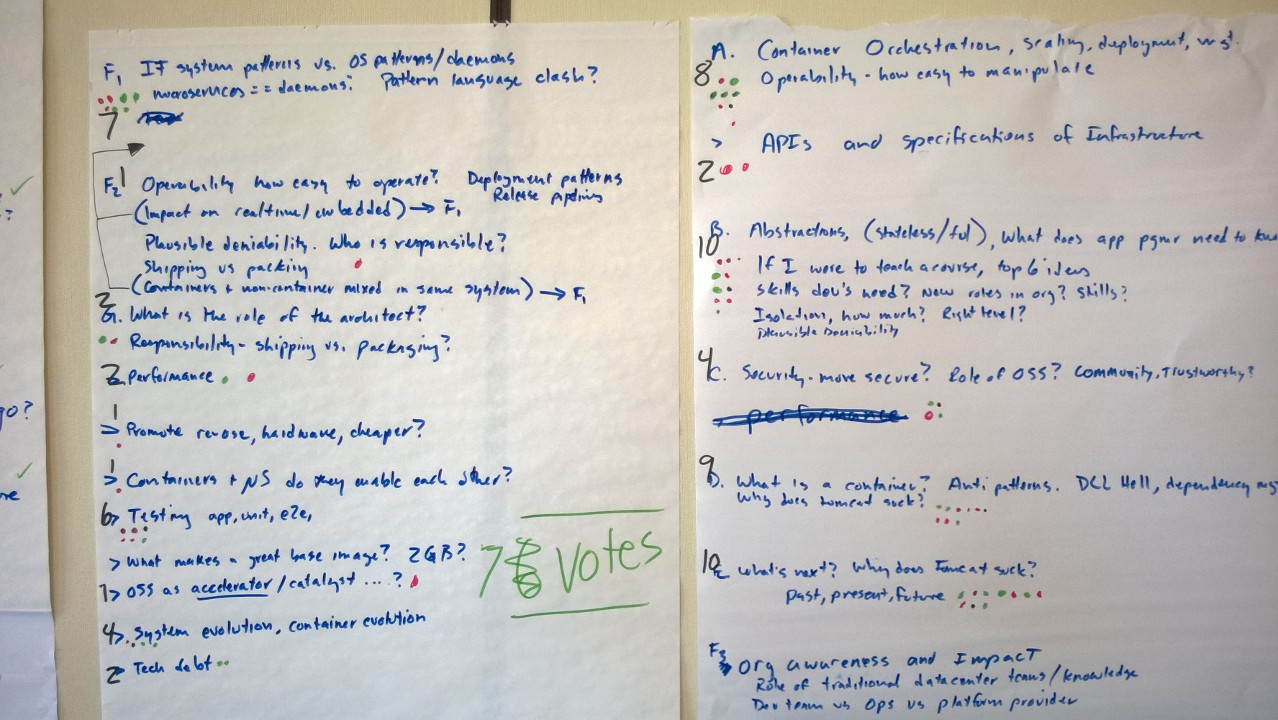 F1 IT system patterns vs. OS patterns/daemons
microservices == daemons? Pattern language clash?
7
F2 1 Operability how easy to operate? Deployment patterns
Release pipelining
(Impact on realtime/embedded) → F1
Plausible deniability. Who is responsible?
Shipping vs packing
(Containers + non-container mixed in same system) → F1
2
G. What is the role of the architect?
Responsibility - shipping vs. packaging?
2 Performance
1
> Promote re-use, hardware, cheaper?
1
> Containers + µS do they enable each other?
6> Testing app, unit, e2e,
> What makes a great base image? 2GB?
1> OSS as accelerator/catalyst ... ?
4> System evolution, container evolution
2 Tech debt
Votes
A. Container Orchestration, scaling, deployment,
8 Operability - how easy to manipulate
> APIs and specifications of Infrastructure
2
B. Abstractions, (stateless/ful), What does app pgmr need to
10
If I were to teach a course, top 6 ideas
Skills dev's need? New roles in org? Skills?
Isolation, how much? Right level?
Plausible Deniability
4
C. Security - more secure? Role of OSS? Community, Trustworthy?
performance
9
D. What is a container? Anti patterns. DLL Hell, dependency
Why does tomcat suck?
10
E What's next? Why does Tomcat suck?
Past, present, future
F3
Org awareness and Impact
Role of traditional datacenter teams/knowledge
Dev team vs Ops vs platform provider
go?